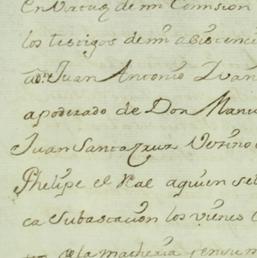 en virtud de mi Comision
los testigos de mi asistencia
Juan Antonio
apoderado de Don Manu
Juan Santa Cruz Vesino
Phelipe el Real aquien se
ca Subastacion los vienes
de la